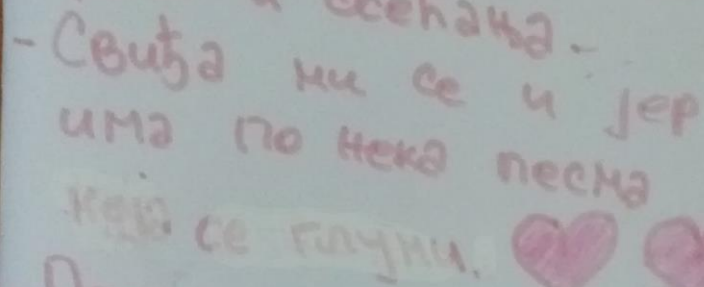 осећања.
- Свиђа ми се и јер
има по нека песма
која се глуми.